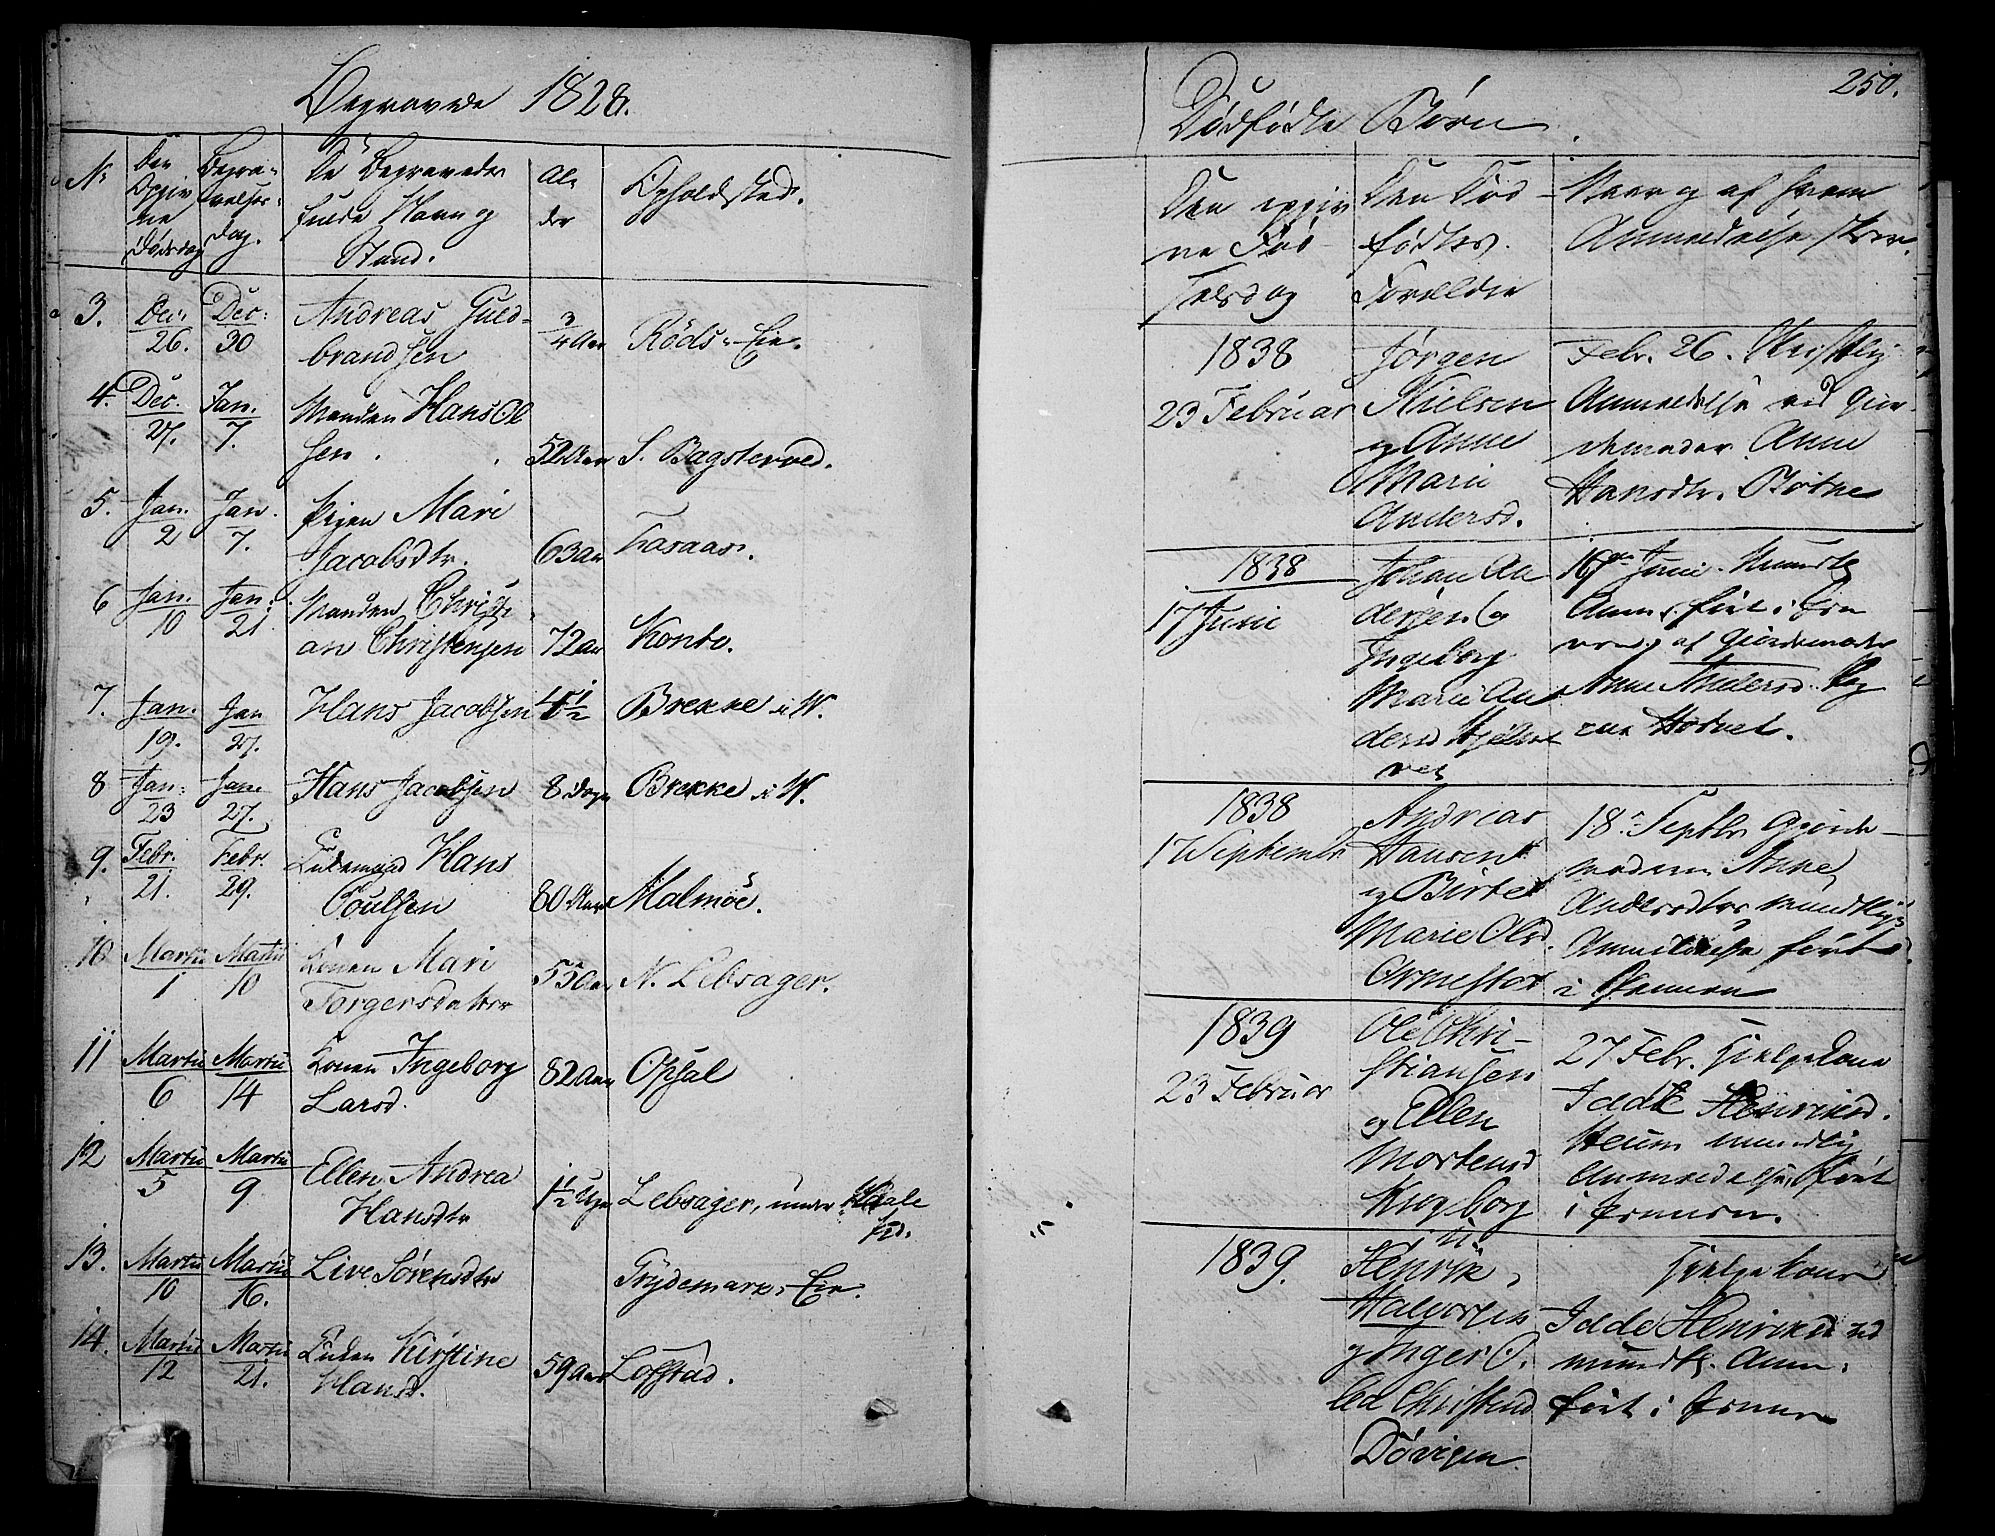 Begravede 1828.
No
Den Opgivne Dødsdag
Begravelses-Dag.
De Begravedes fulde Navn og Stand.
Alder
Opholdsted.
3. Dec: 26. Dec: 30 Andreas Guldbrandsen 3/4 Aar Röds-Eie.
4. Dec. 27. Jan. 7. Manden Hans Olsen. 52 Aar S. Bagsterød.
5. Jan. 2 Jan. 7. Pigen Mari Jacobsdtr. 63 Aar Taraas.
6 Jan. 10 Jan. 21. Manden Christian Christensen 72 Aar Konto.
7. Jan. 19. Jan 27. Hans Jacobsen Brekke i W.
8 Jan: 23 Jan. 27. Hans Jacobsen 8 Dage Brekke i W.
9. Febr. 21. Febr. 29. Hans Poulsen 80 Aar Malmöe.
10 Martii 1 Martii 10 Konen Mari Torgersdatter 55 Aar N. Lebsager.
11 Martii 6 Martii 14 Konen Ingeborg Larsd. 82 Aar Opsal
12 Martii 5 Martii 9 Ellen Andrea Hansdtr 1 1/2 Uge Lebsager, under
13. Martii 10 Martii 16. Live Sörensdtr Prydemark-Eie.
14. Martii 12 Martii 21. Enken Kirstine Hansd. 59 Aar Lofstad.
250.
Dödfödte Börn.
Den opgivne Födselsdag
Den Dödfödtes Forældre
Naar og af hvem Anmeldelse skeer.
1838
23 Februar
Jörgen
Nielsen
og Anne
Marie
Andersd.
Febr. 26. Skriftlig
Anmeldelse ved Gjor-
demoder Anne
Hansdtr. Böthne
1838
17 Junii
Johan An
dersen og
Ingeborg
Marie An
dersd
Junii. Mundtl.
Anm. fört i
af Gjordemoder
Anne Andersd.
1838
17 September
Andreas
Hansen
og Birte
Marie Olsd.
Ormestad
18. Septbr Gjorde-
moderen Anne
Andersdtrs mundtlige
Anmeldelse fört
i
1839
23 Februar
Ole Chri-
stiansen
og Ellen
Mortensd
27 Febr. Hjelpekone
Idde Henriksd.
Heum mundtlig
Anmeldelse, fört
i
1839.
Henrik
Halvorsen
og Inger O.
lea Christensd
Dövigen
Hjelpekone
Idde Henriksd
mundtl. Anm.
fört i